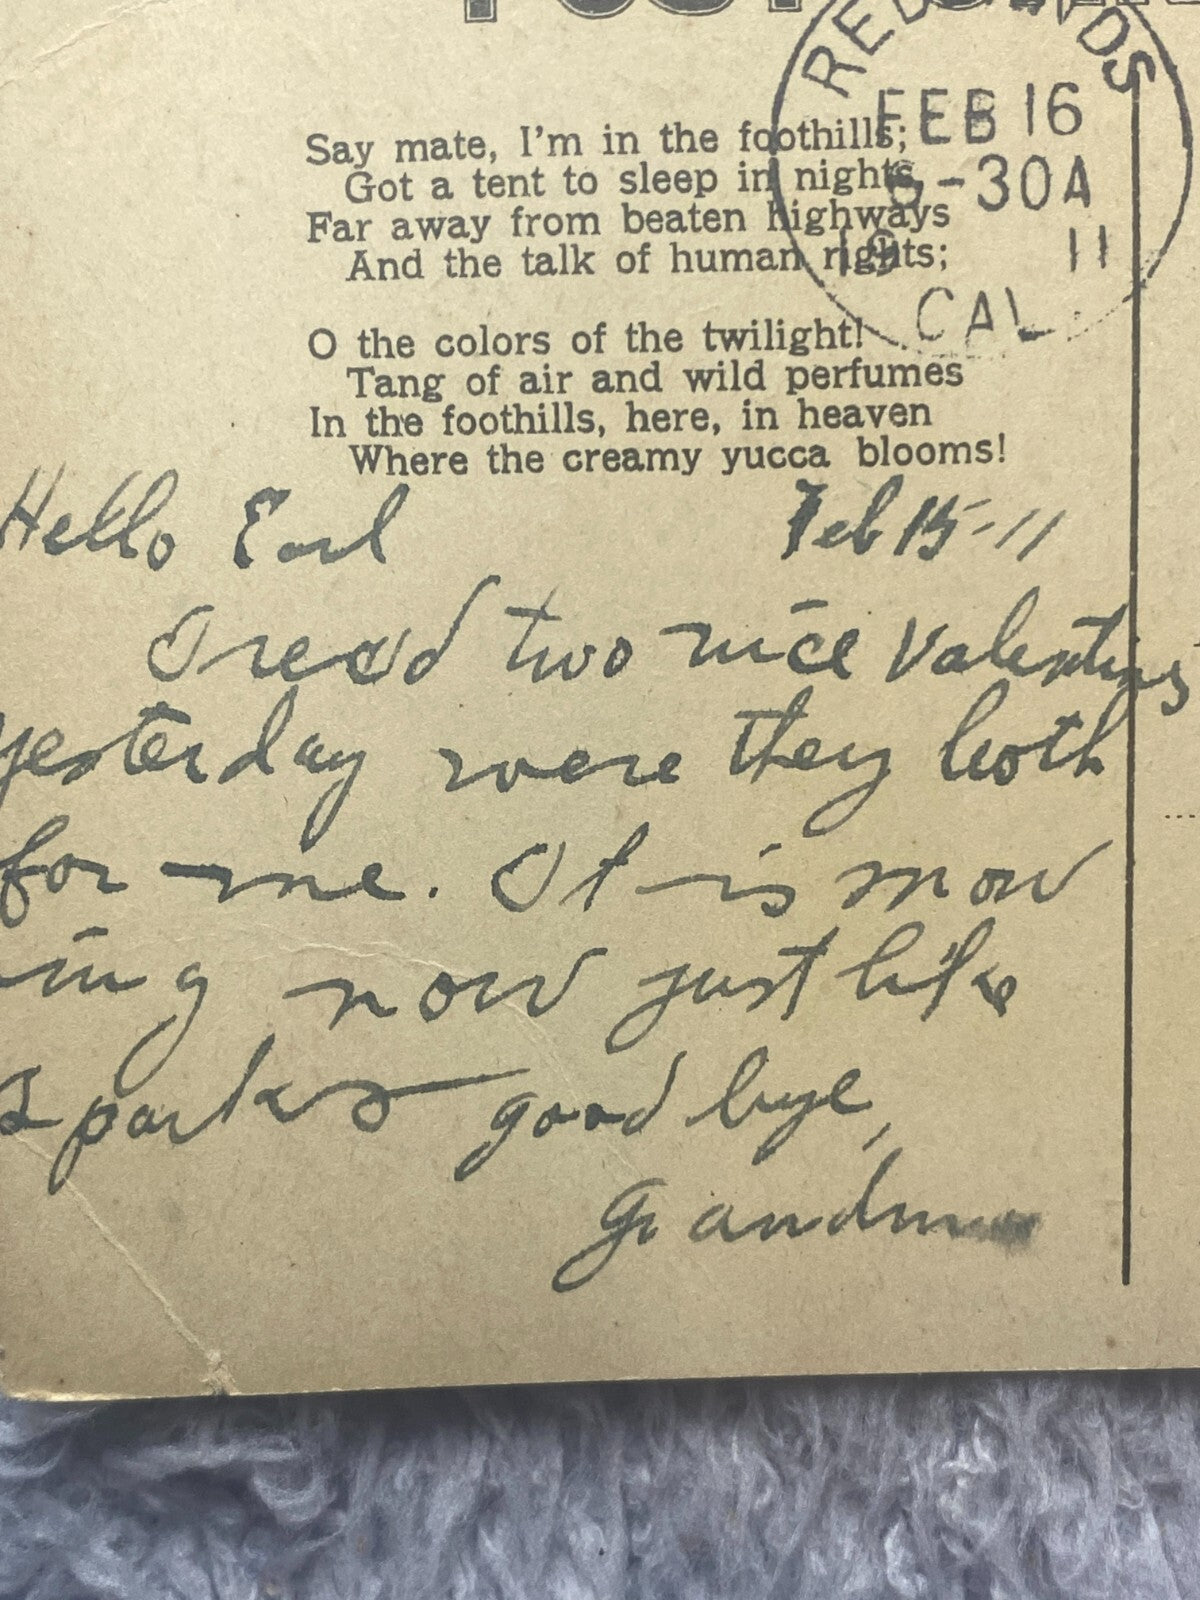 POST CARD
REDLANDS
FEB 16
6-30A
19 11
CAL.
Say mate, I'm in the foothills;
Got a tent to sleep in nights,
Far away from beaten highways
And the talk of human rights;
O the colors of the twilight!
Tang of air and wild perfumes
In the foothills, here, in heaven
Where the creamy yucca blooms!
Hello Earl Feb 15-11
I recd two nice valentins
yesterday were they both
for me. It is snow
ing now just like
Sparks good bye,
Grandma